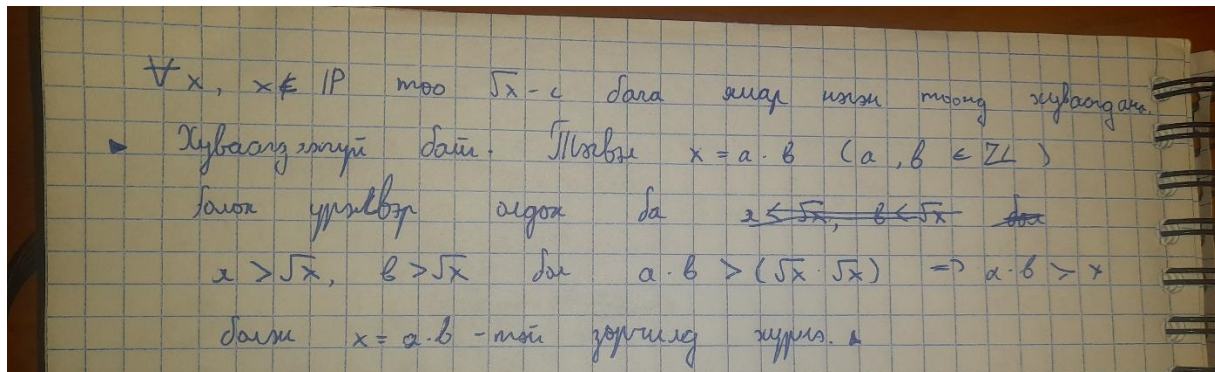 ∀x, x ∉ ℙ тоо √x-с бага ямар нэгэн тоонд хуваагдана.
▸ Хуваагдахгүй байг. Тэгвэл x = a · b (a, b ∈ ℤ)
болох үржвэр олдох ба
a > √x, b > √x бол a · b > (√x · √x) => a · b > x
болж x = a · b -тэй зөрчилд хүрнэ.